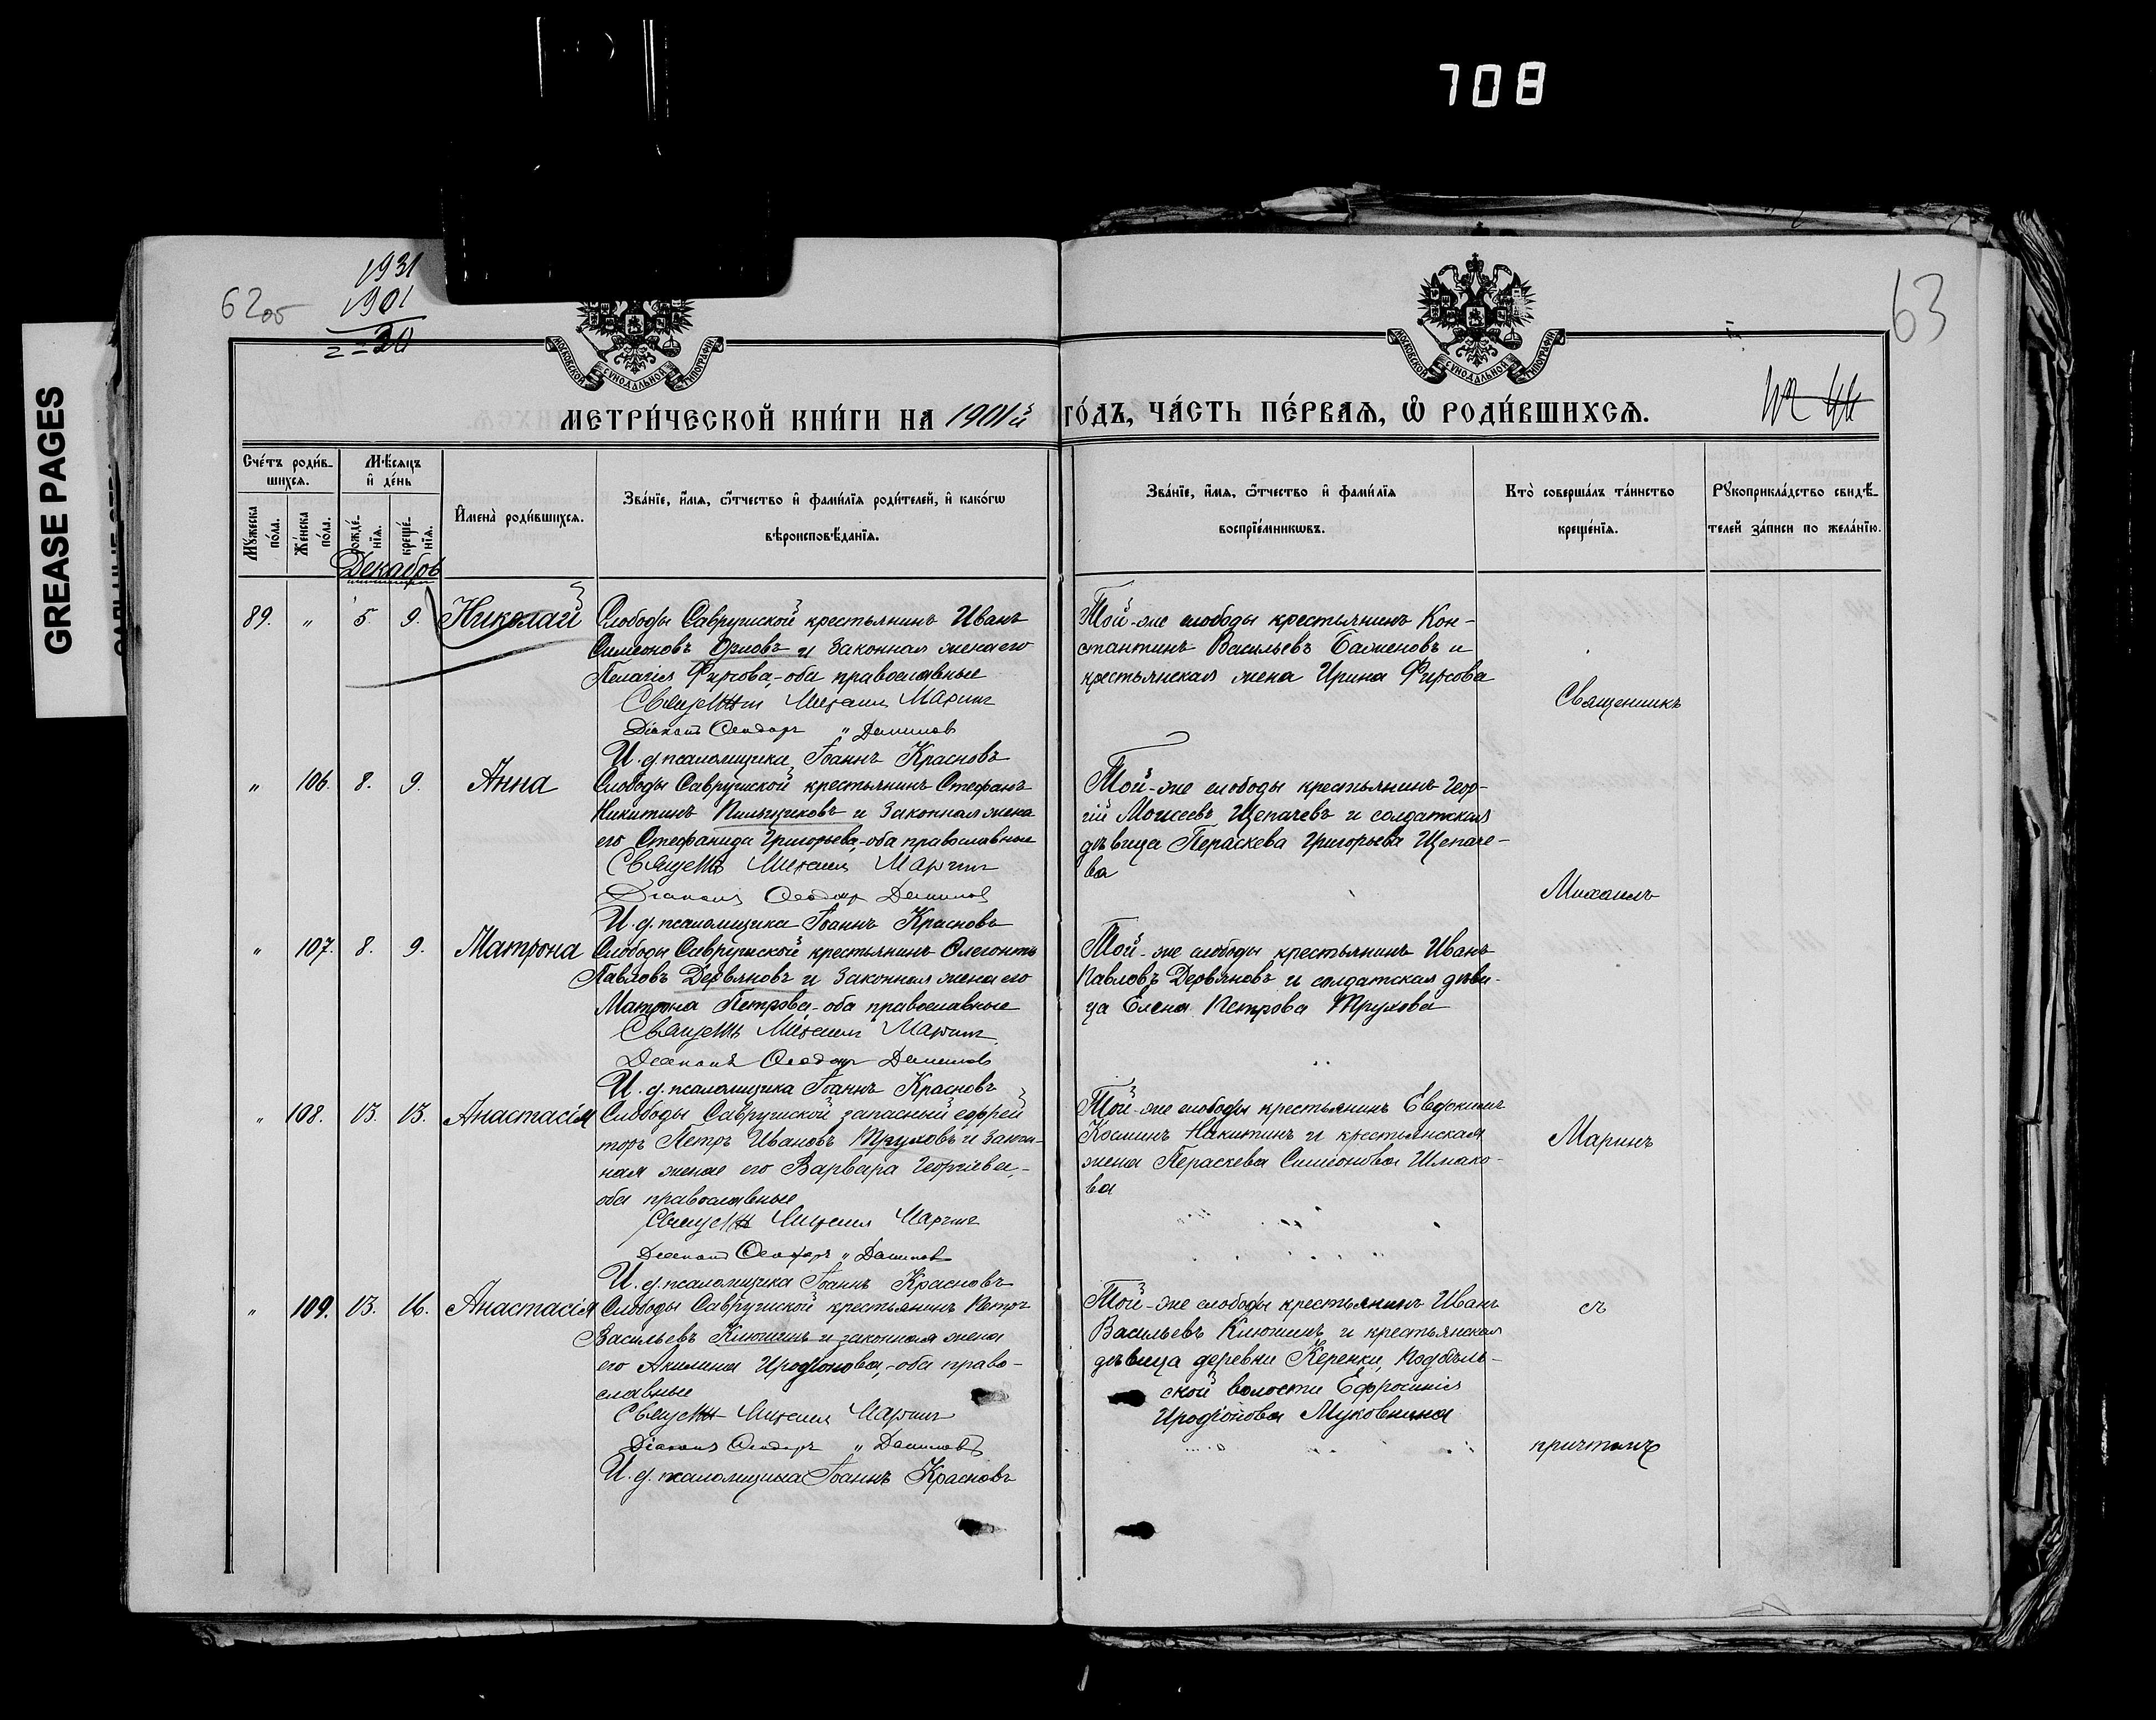 708
GREASE PAGES
62об
1931
1901
= 30
63
МОСКОВСКОЙ СѴНОДАЛЬНОЙ ТИПОГРАФІИ
МОСКОВСКОЙ СѴНОДАЛЬНОЙ ТИПОГРАФІИ
МЕТРИ́ЧЕСКОЙ КНИ́ГИ НА 1901й ГО́ДЪ, ЧА́СТЬ ПЕ́РВАЯ, Ѡ РОДИ́ВШИХСЯ.
Сче́тъ роди́в-
шихся.
Мѣ́сяцъ
и де́нь
Мꙋ́жеска по́ла.
Же́нска по́ла.
рожде́-
нія.
креще́-
нія.
Имена̀ роди́вшихся.
Зва́ніе, и́мя, ѻ́тчество и фами́лія роди́телей, и како́гѡ
вѣроисповѣ́данія.
Зва́ніе, и́мя, ѻ́тчество и фами́лія
воспріе́мникѡвъ.
Кто̀ соверша́лъ та́инство
креще́нія.
Рꙋкоприкла́дство свидѣ́-
телей за́писи по жела́нію.
Декабрь
89. " 5 9. Николай
Слободы Саврушской крестьянинъ Иванъ
Симеоновъ Орловъ и законная жена его
Пелагія Фирсова,-оба православные
Священн Михаилъ Маринъ
Діаконъ Ѳеодоръ " Даниловъ
И. д. псаломщика Іоаннъ Красновъ
Той-же слободы крестьянинъ Кон-
стантинъ Васильевъ Баженовъ и
крестьянская жена Ирина Фирсова
Священникъ
" 106. 8. 9. Анна
Слободы Саврушской крестьянинъ Стефанъ
Никитинъ Пильщиковъ и законная жена
его Стефанида Григорьева,-оба православные
Священ Михаилъ Маринъ
Діаконъ Ѳеодоръ Даниловъ
И. д. псаломщика Іоаннъ Красновъ
Той-же слободы крестьянинъ Геор-
гій Моисеевъ Щепачевъ и солдатская
дѣвица Параскева Григорьева Щепаче-
ва
Михаилъ
" 107. 8. 9. Матрона
Слободы Саврушской крестьянинъ Олегонтъ
Павловъ Дервяновъ и законная жена его
Матрона Петрова,-оба православные
Священ Михаилъ Маринъ
Діаконъ Ѳеодоръ Даниловъ
И. д. псаломщика Іоаннъ Красновъ
Той-же слободы крестьянинъ Иванъ
Павловъ Дервяновъ и солдатская дѣви-
ца Елена Петрова Трухова
" 108. 13. 13. Анастасія
Слободы Саврушской запасный ефрей
торъ Петръ Ивановъ Труховъ и закон-
ная жена его Варвара Георгіева,-
оба православные
Священ Михаилъ Маринъ
Діаконъ Ѳеодоръ " Даниловъ
И. д. псаломщика Іоаннъ Красновъ
Той-же слободы крестьянинъ Евдокимъ
Косминъ Никитинъ и крестьянская
жена Параскева Симеонова Шмако-
ва
Маринъ
" 109. 13. 16. Анастасія
Слободы Саврушской крестьянинъ Петръ
Васильевъ Клюшинъ и законная жена
его Акилина Иродіонова,-оба право-
славные
Священ Михаилъ Маринъ
Діаконъ Ѳеодоръ " Даниловъ
И. д. псаломщика Іоаннъ Красновъ
Той-же слободы крестьянинъ Иванъ
Васильевъ Клюшинъ и крестьянская
дѣвица деревни Керенки, Подбѣль-
ской волости Ефросинія
Иродіонова Муковнина
съ
причтомъ